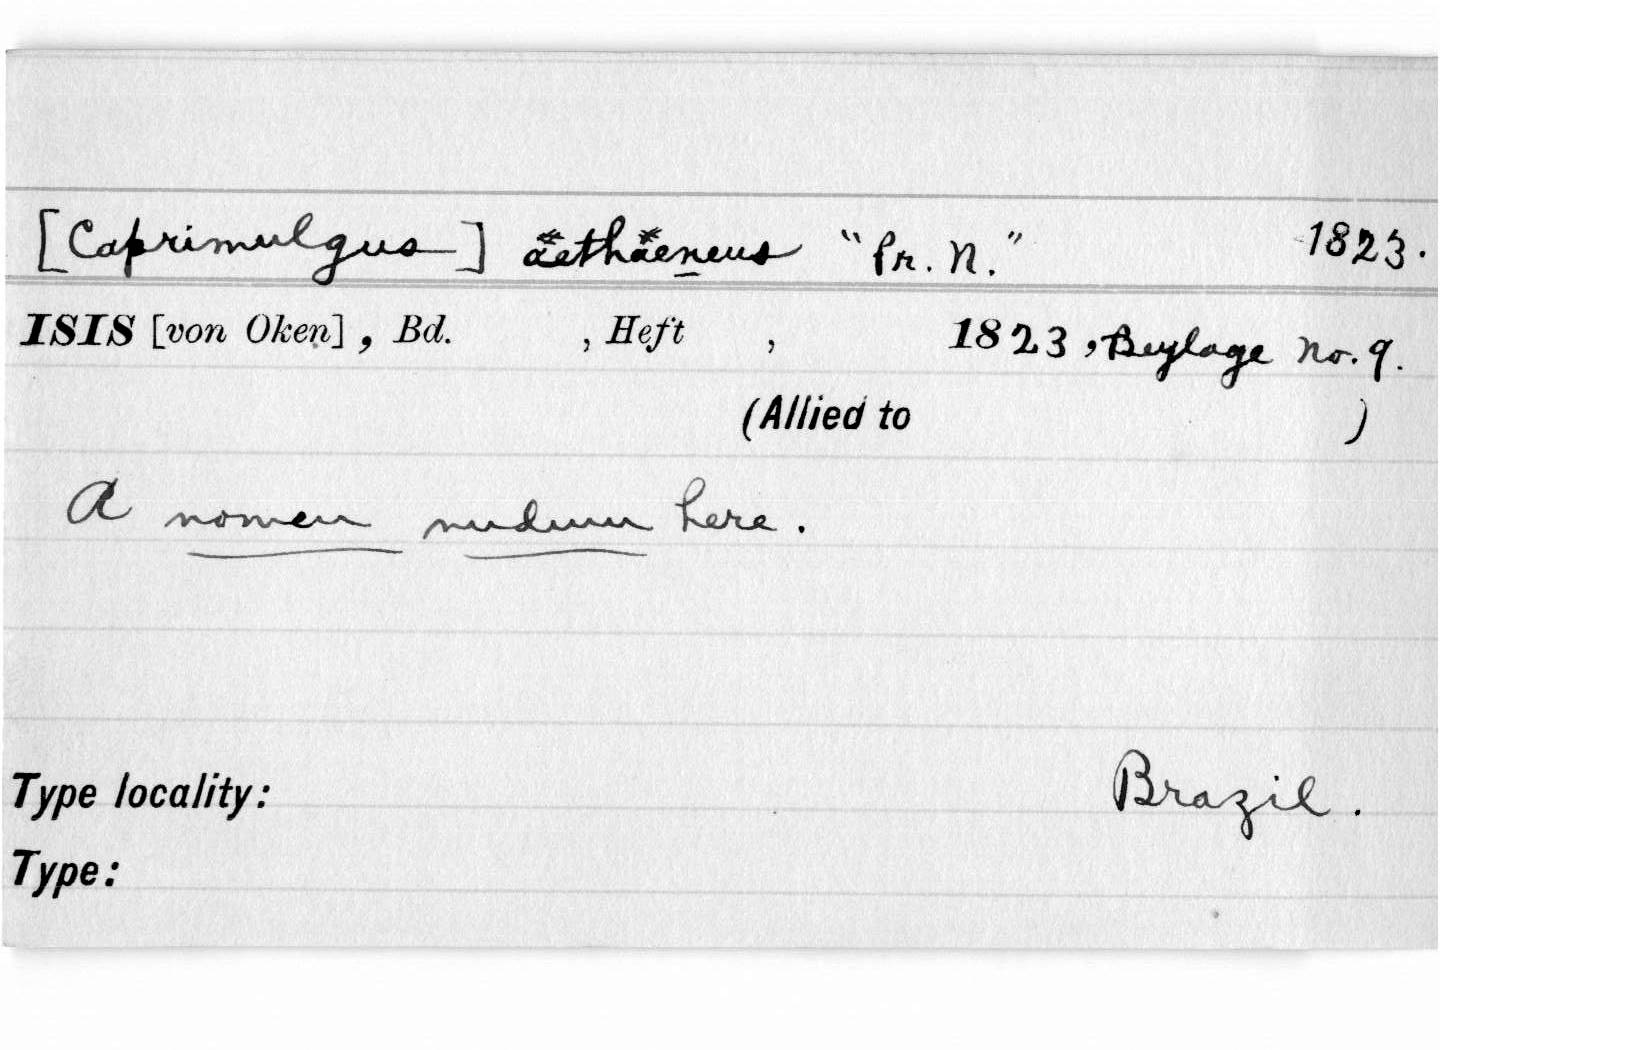 [Caprimulgus] äethäeneus "Pr. N." 1823.
ISIS [von Oken], Bd. , Heft , 1823, Beylage No. 9.
(Allied to )
A nomen nudum here.
Type locality: Brazil.
Type: